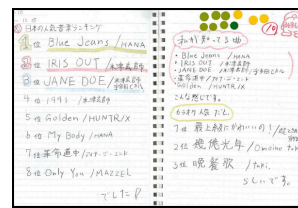 日本の人気音楽ランキング
1位 Blue Jeans /HANA
2位 IRIS OUT /米津玄師
3位 JANE DOE /米津玄師
4位 1991 /米津玄師
5位 Golden /HUNTR/X
6位 My Body /HANA
7位 革命道中 /アイナ・ジ・エンド
8位 Only You /MAZZEL
でした
私が知ってる曲
・Blue Jeans /HANA
・IRIS OUT /米津玄師
・JANE DOE /米津玄師
・革命道中 /アイナ・ジ・エンド
・Golden /HUNTR/X
こんな感じです。
カラオケ人気だと、
1位 最上級にかわいいの!
2位 倍倍光年 /Omoino
3位 晩餐歌 /tuki.
らしいです。